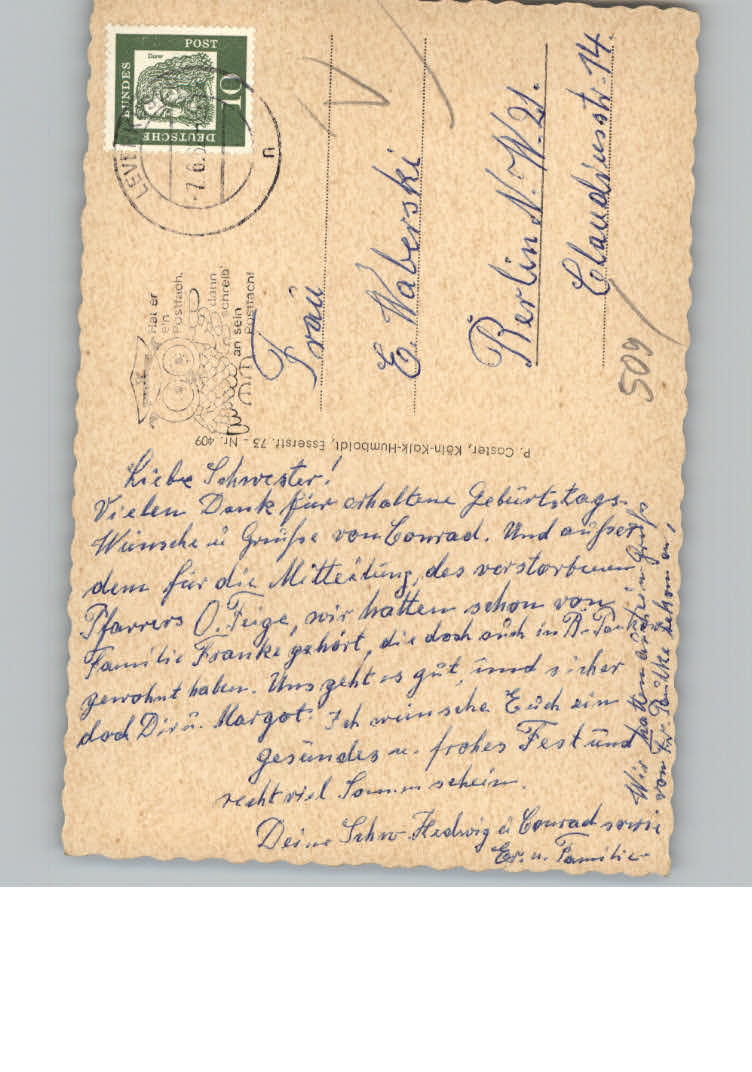 DEUTSCHE
BUNDES
POST
Dürer
10
LEVE
-7.6.
n
Hat er
ein
Postfach,
dann
schreib'
an sein
Postfach!
Frau
E. Waberski
Berlin N.W. 21.
Claudiusstr. 14.
509
P. Coster, Köln-Kalk-Humboldt, Esserstr. 73 - Nr. 409
Liebe Schwester!
Vielen Dank für erhaltene Geburtstags-
Wünsche u Grüße von Conrad. Und außer
dem für die Mitteilung, des verstorbenen
Pfarrers O. Feige, wir hatten schon von
Familie Franke gehört, die doch auch in
gewohnt haben. Uns geht es gut, und sicher
doch Dir u. Margot. Ich wünsche Euch ein
gesundes u. frohes Fest und
recht viel Sonnenschein.
Deine Schw. Hedwig u Conrad sowie
u. Familie
Wir hatten auch ein Gruß
von Fr. bekommen,